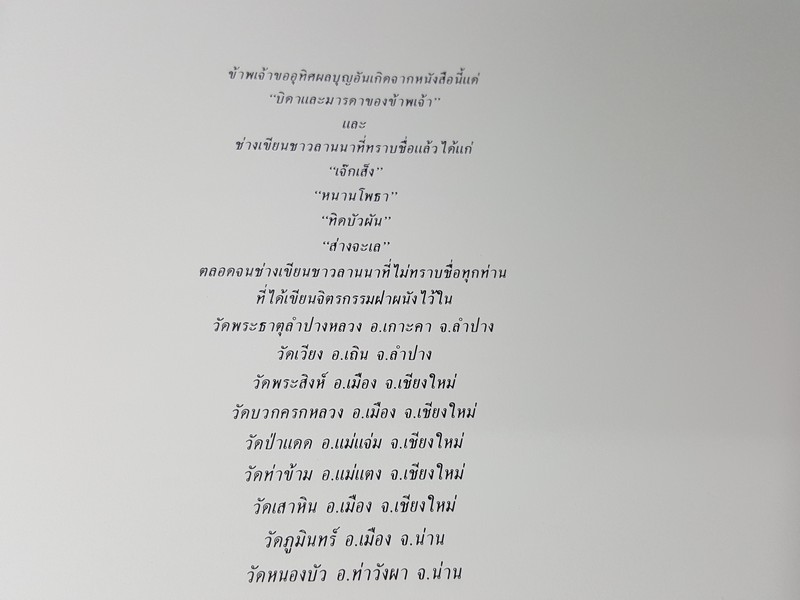 ข้าพเจ้าขออุทิศผลบุญอันเกิดจากหนังสือนี้แด่
“บิดาและมารดาของข้าพเจ้า”
และ
ช่างเขียนชาวลานนาที่ทราบชื่อแล้ว ได้แก่
“เจ๊กเส็ง”
“หนานโพธา”
“ทิดบัวผัน”
“ส่างจะเล”
ตลอดจนช่างเขียนชาวลานนาที่ไม่ทราบชื่อทุกท่าน
ที่ได้เขียนจิตรกรรมฝาผนังไว้ใน
วัดพระธาตุลำปางหลวง อ.เกาะคา จ.ลำปาง
วัดเวียง อ.เถิน จ.ลำปาง
วัดพระสิงห์ อ.เมือง จ.เชียงใหม่
วัดบวกครกหลวง อ.เมือง จ.เชียงใหม่
วัดป่าแดด อ.แม่แจ่ม จ.เชียงใหม่
วัดท่าข้าม อ.แม่แตง จ.เชียงใหม่
วัดเสาหิน อ.เมือง จ.เชียงใหม่
วัดภูมินทร์ อ.เมือง จ.น่าน
วัดหนองบัว อ.ท่าวังผา จ.น่าน